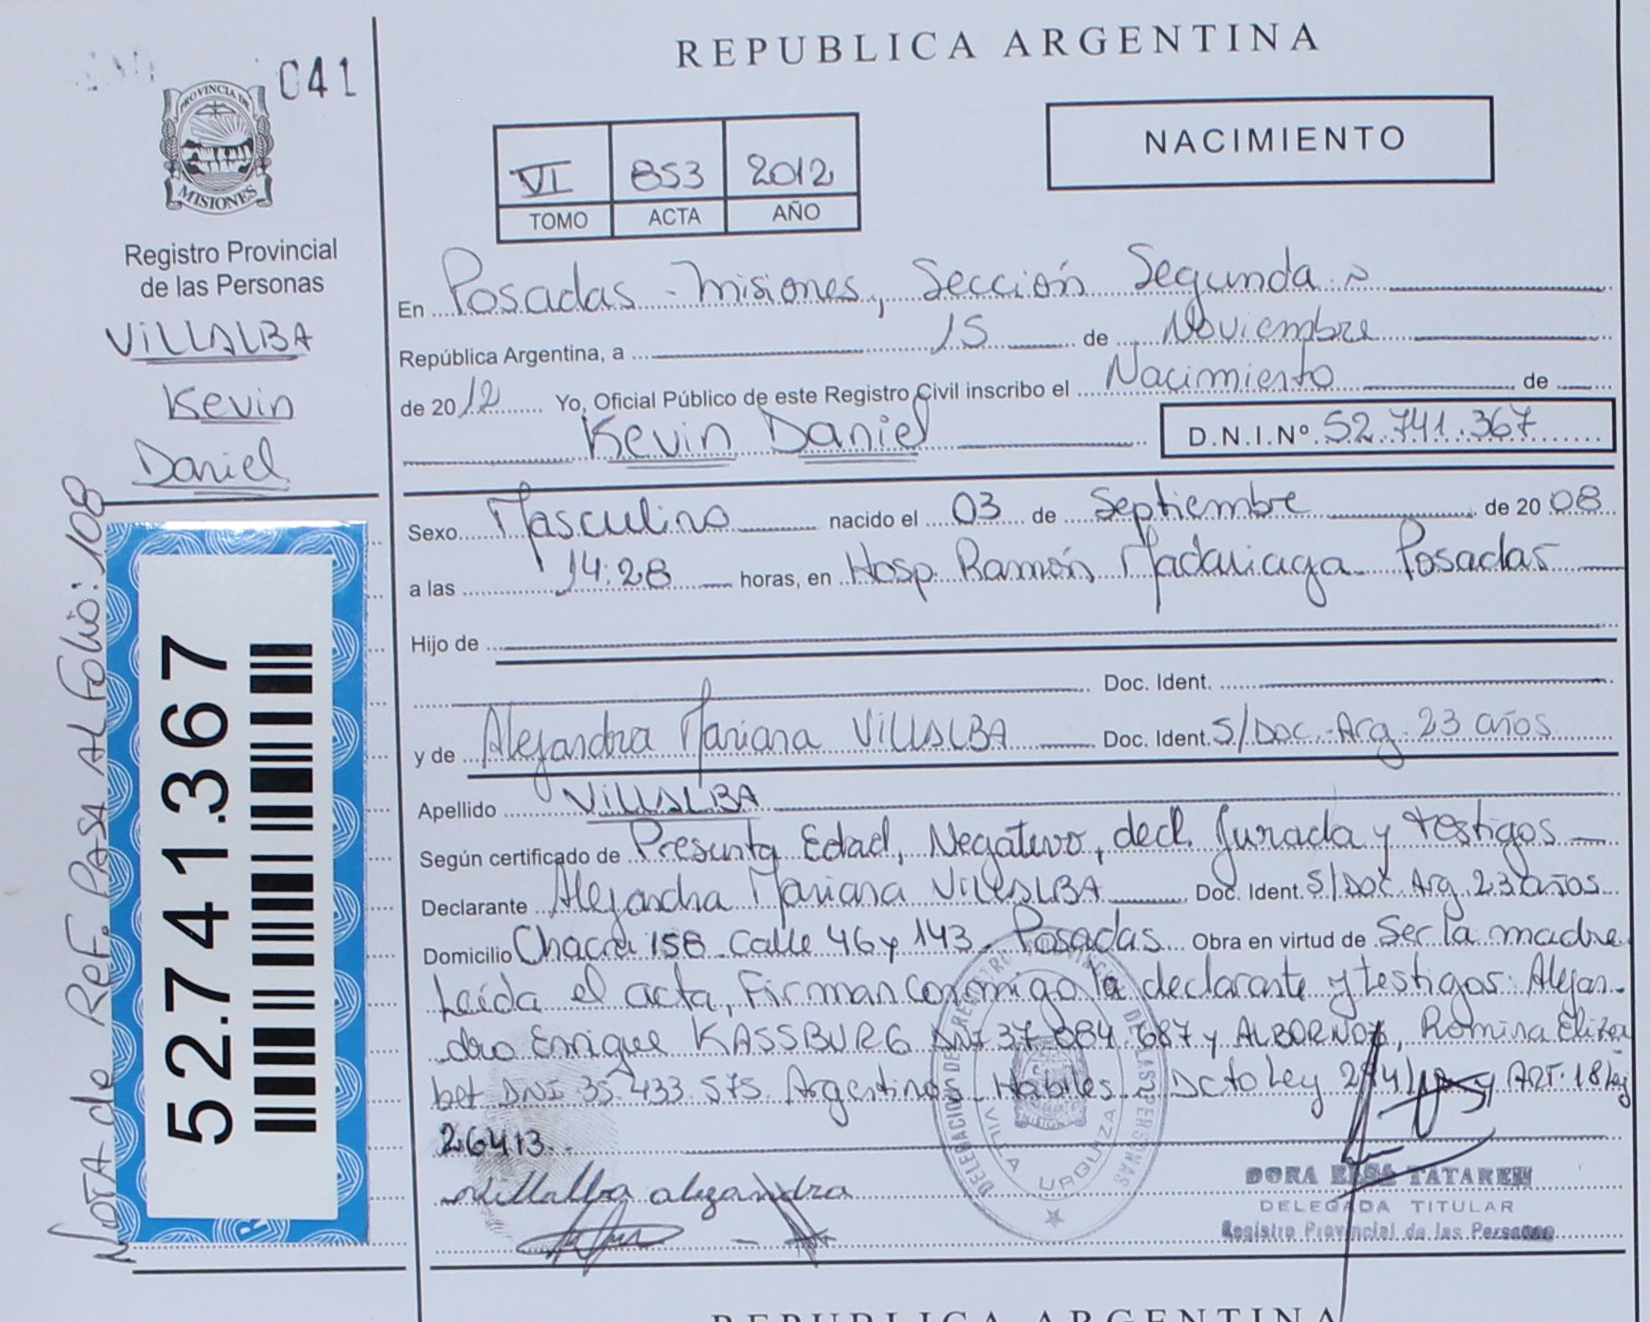 REPUBLICA ARGENTINA
041
PROVINCIA DE
MISIONES
NACIMIENTO
VI 853 2012
TOMO ACTA AÑO
Registro Provincial
de las Personas
VILLALBA
Kevin
Daniel
En Posadas - Misiones, Sección Segunda
República Argentina, a 15 de Noviembre
de 2012 Yo, Oficial Público de este Registro Civil inscribo el Nacimiento de
Kevin Daniel D.N.I.Nº 52.741.367
Sexo Masculino nacido el 03 de Septiembre de 2008
a las 14:28 horas, en Hosp. Ramón Madariaga Posadas
Hijo de
Doc. Ident.
y de Alejandra Mariana VILLALBA Doc. Ident. S/Doc. Arg. 23 años
Apellido VILLALBA
Según certificado de Presunta Edad, Negativo, decl. Jurada y testigos
Declarante Alejandra Mariana VILLALBA Doc. Ident. S/Doc Arg. 23 años
Domicilio Chacra 158 Calle 46 y 143. Posadas Obra en virtud de Ser la madre
Leída el acta, Firman conmigo la declarante y testigos: Alejan-
dro Enrique KASSBURG DNI 37.084.687 y ALBORNOZ, Romina Eliza
bet DNI 35.433.575 Argentinos Habiles Dcto Ley y ART. 18 Ley
26413.
Villalba alejandra
VILLA URQUIZA
DORA ELSA TATAREN
DELEGADA TITULAR
Registro Provincial de las Personas
52.741.367
NOTA de REF. PASA AL Folio: 108
REPUBLICA ARGENTINA